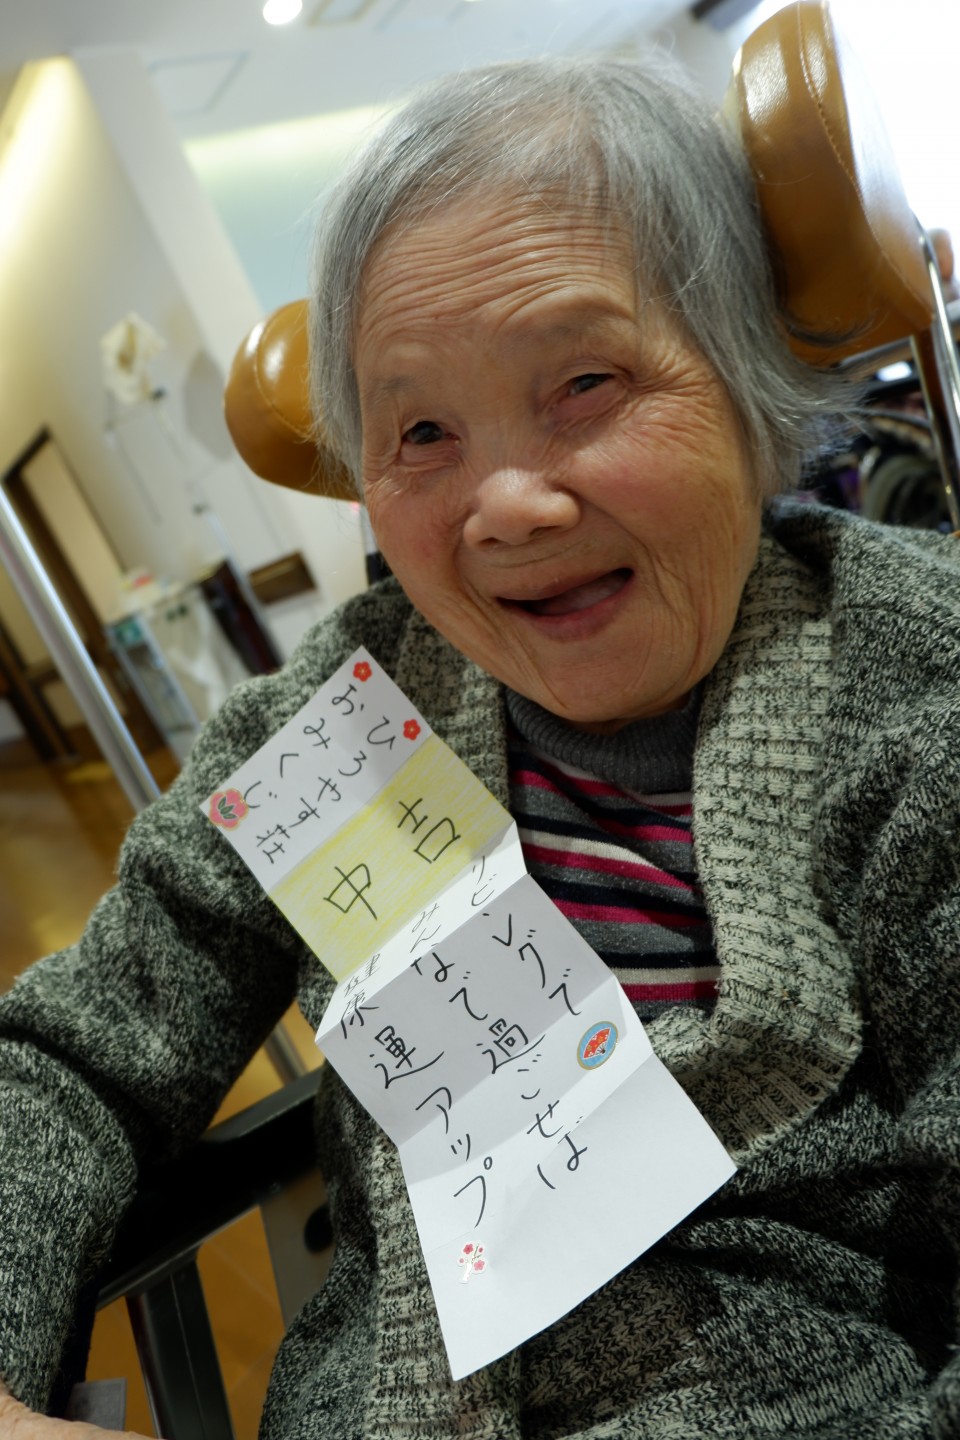 ひろやす荘
おみくじ
中吉
リビングで
みんなで過ごせば
健康運アップ